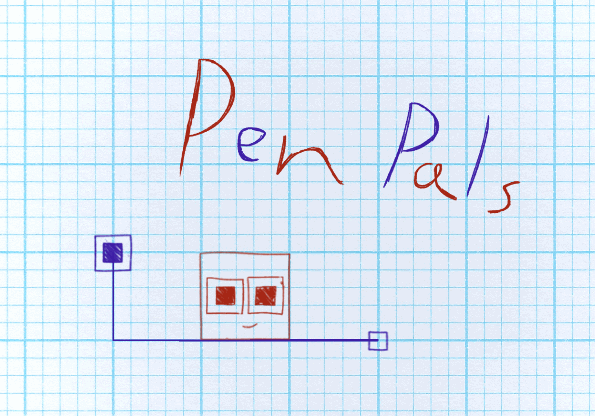 Pen Pals